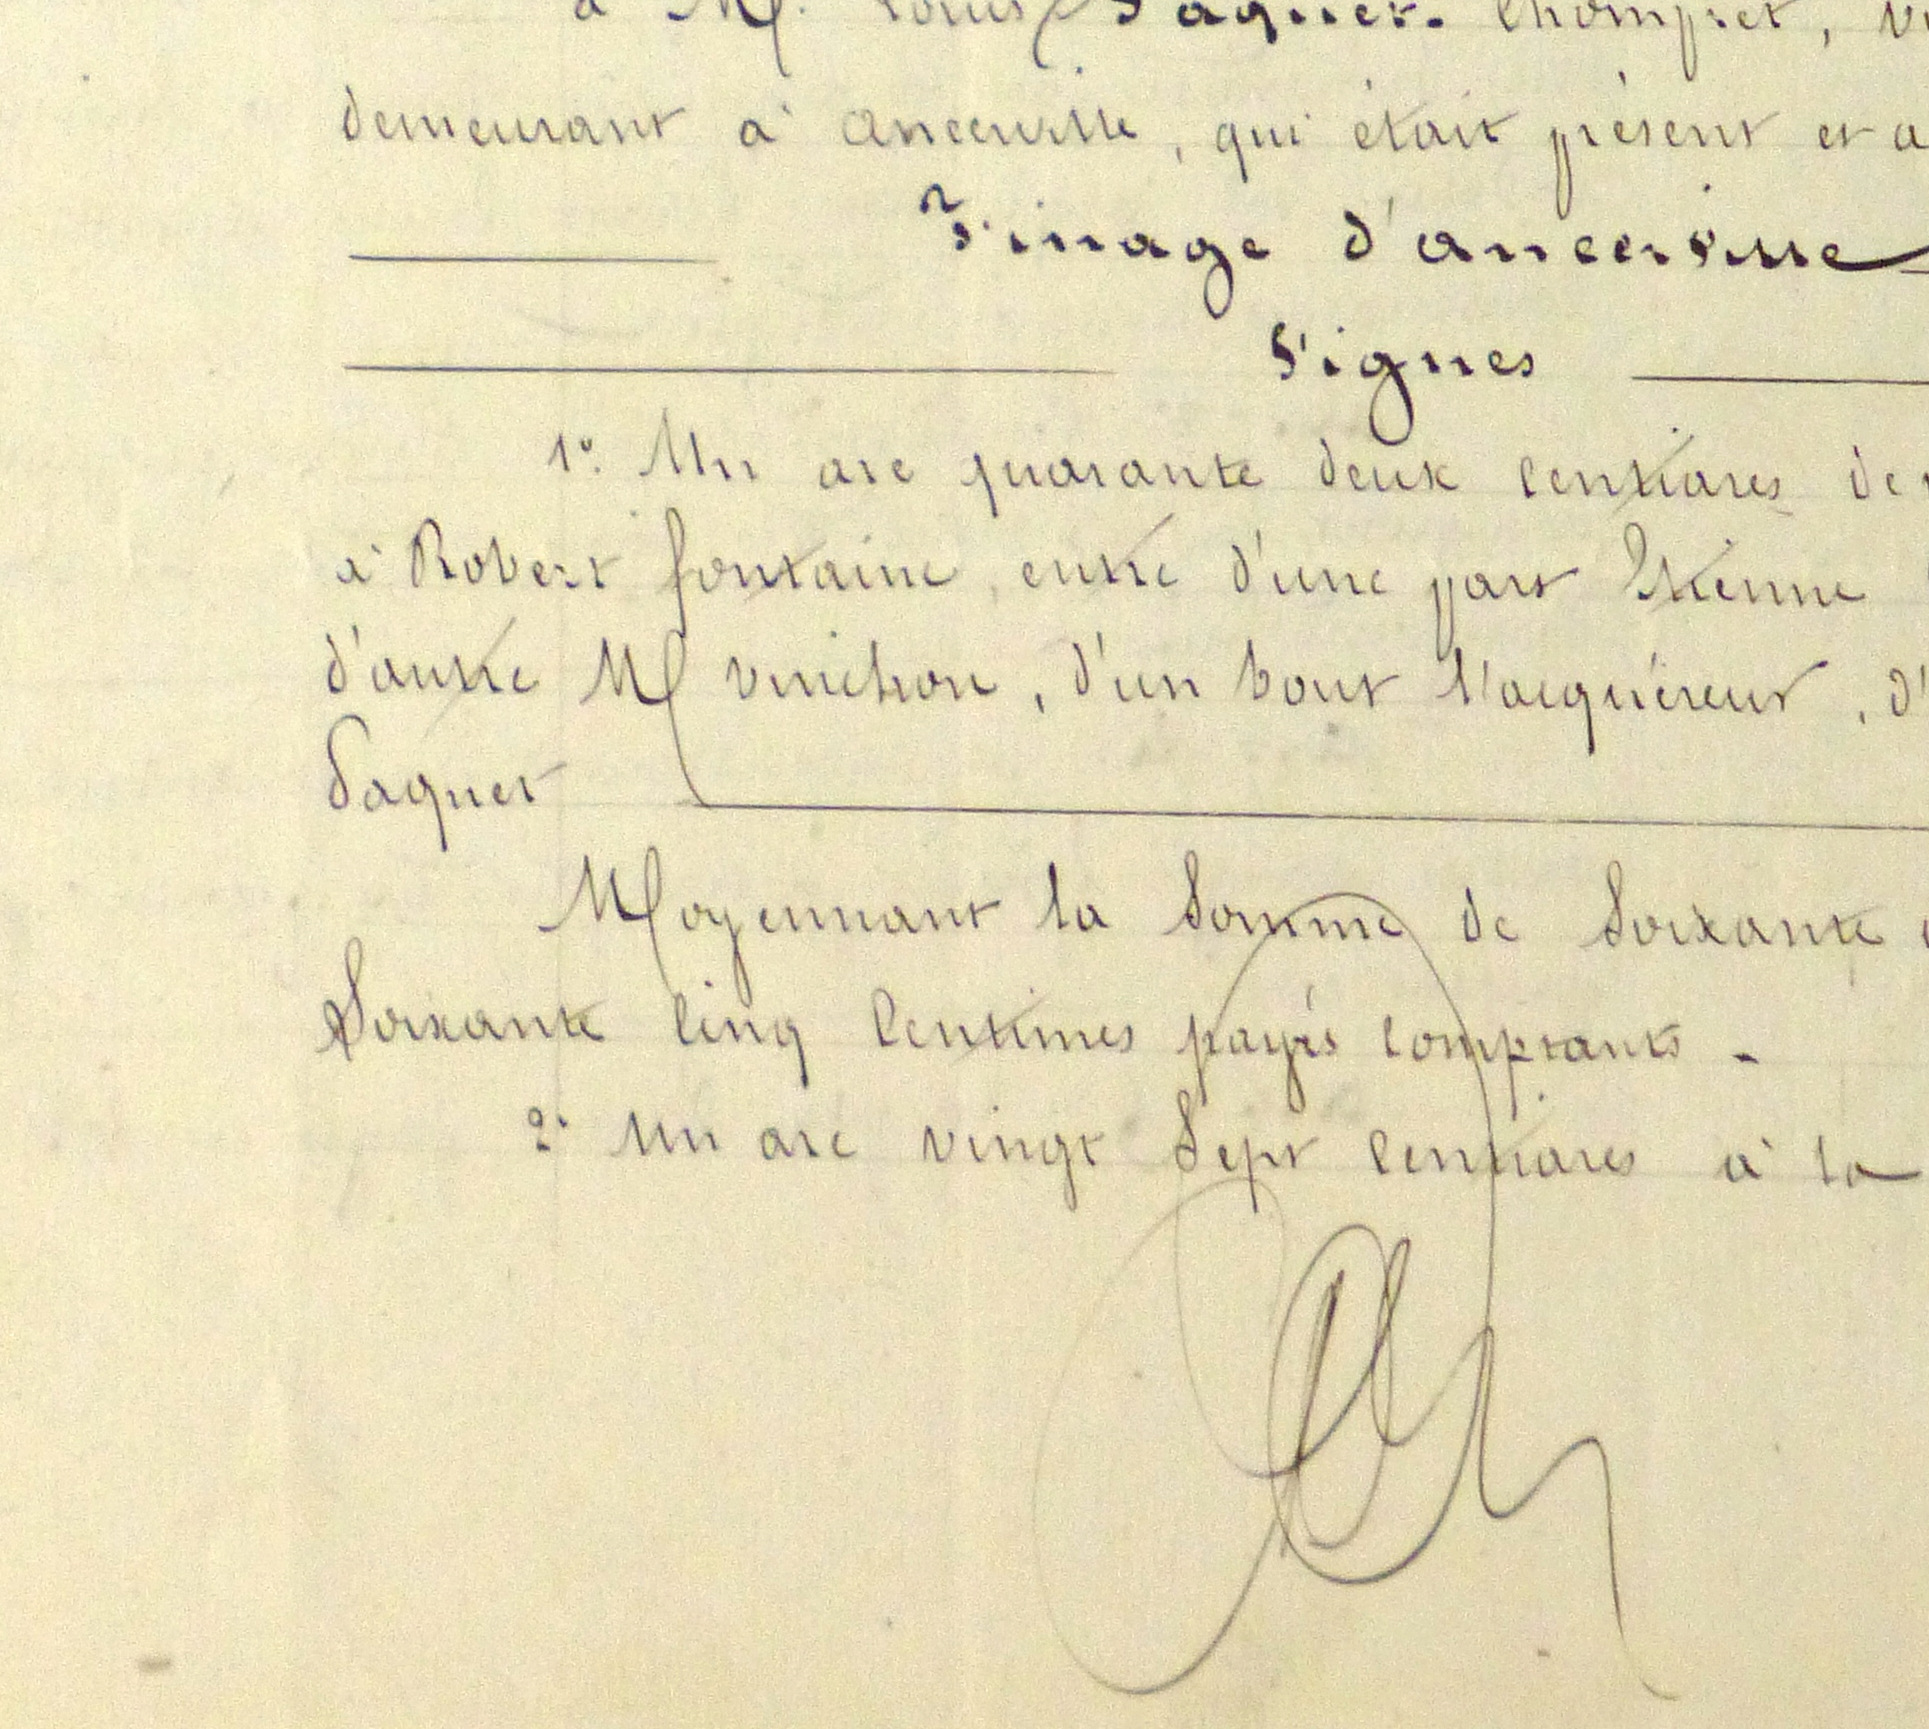 à M. Louis Paquet-Chompret, 
demeurant à ancerville, qui était présent et a
Finage d'ancerville
Vignes
1° Un are quarante deux centiares de
à Robert fontaine, entre d'une part Etienne
d'autre M vinchon, d'un bout l'acquéreur, d'
Paquet
Moyennant la somme de soixante
soixante cinq centimes payés comptants -
2° Un are vingt sept centiares à la